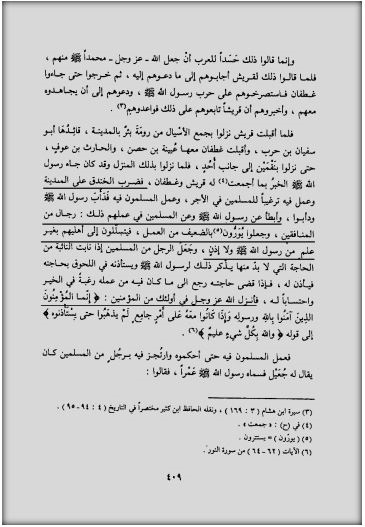 وإنما قالوا ذلك حَسَداً للعرب أنْ جعل الله - عز وجل - محمداً ﷺ منهم ،
فلما قالوا ذلك لقريش أجابوهم إلى ما دعوهم إليه ، ثم خرجوا حتى جاءوا
غطفان فاستصرخوهم على حرب رسول الله ﷺ ، ودعوهم إلى أن يجاهدوه
معهم ، وأخبروهم أن قريشاً تابعوهم على ذلك فواعدوهم(٣) .
فلما أقبلت قريش نزلوا بجمع الأسْيال من رومَةَ بئرٌ بالمدينة ، قائدُها أبو
سفيان بن حرب ، وأقبلت غطفان معها عُيينة بن حصن ، والحارث بن عوف ،
حتى نزلوا بنَقْمَيْن إلى جانب أُحُدٍ ، فلما نزلوا بذلك المنزل وقد كان جاء رسول
الله ﷺ الخبرُ بما أجمعت(٤) له قريش وغطفان ، فضرب الخندق على المدينة
وعمل فيه ترغيباً للمسلمين في الأجر ، وعمل المسلمون فيه فَدَأَبَ رسول الله ﷺ
ودأبوا ، وأبطأ عن رسول الله ﷺ وعن المسلمين في عملهم ذلك : رجال من
المنافقين ، وجعلوا يُوَرُّون(٥)بالضعيف من العمل ، فيتسلّلون إلى أهليهم بغير
علم من رسول الله ﷺ ولا إذن ، وجَعَل الرجل من المسلمين إذا نابت النائبة من
الحاجة التي لا بدّ منها يذكر ذلك لرسول الله ﷺ ويستأذنه في اللحوق بحاجته
فيأذن له ، فإذا قضى حاجته رجع الى ما كان فيه من عمله رغبةً في الخير
واحتساباً له ، فأنزل الله عز وجل في أولئك من المؤمنين : ﴿ إنّما المُؤْمِنُونَ
الذينَ آمَنُوا باللهِ ورسولهِ وَإذَا كَانُوا مَعَهُ عَلَى أَمْرٍ جامِعٍ لَمْ يذهَبُوا حتى يسْتَأذنوه ﴾
إلى قوله ﴿ والله بِكُلِّ شيءٍ عليمٌ ﴾(٦) .
فعمل المسلمون فيه حتى أحكموه وارتُجز فيه برجُلٍ من المسلمين كان
يقال له جُعَيْل فسماه رسول الله ﷺ عَمْراً ، فقالوا :
(٣) سيرة ابن هشام (٣ : ١٦٩) ، ونقله الحافظ ابن كثير مختصراً في التاريخ (٤ : ٩٤ - ٩٥) .
(٤) في (ح) : « جمعت » .
(٥) ( يورّون ) = يستترون .
(٦) الآيات (٦٢ - ٦٤) من سورة النور .
٤٠٩